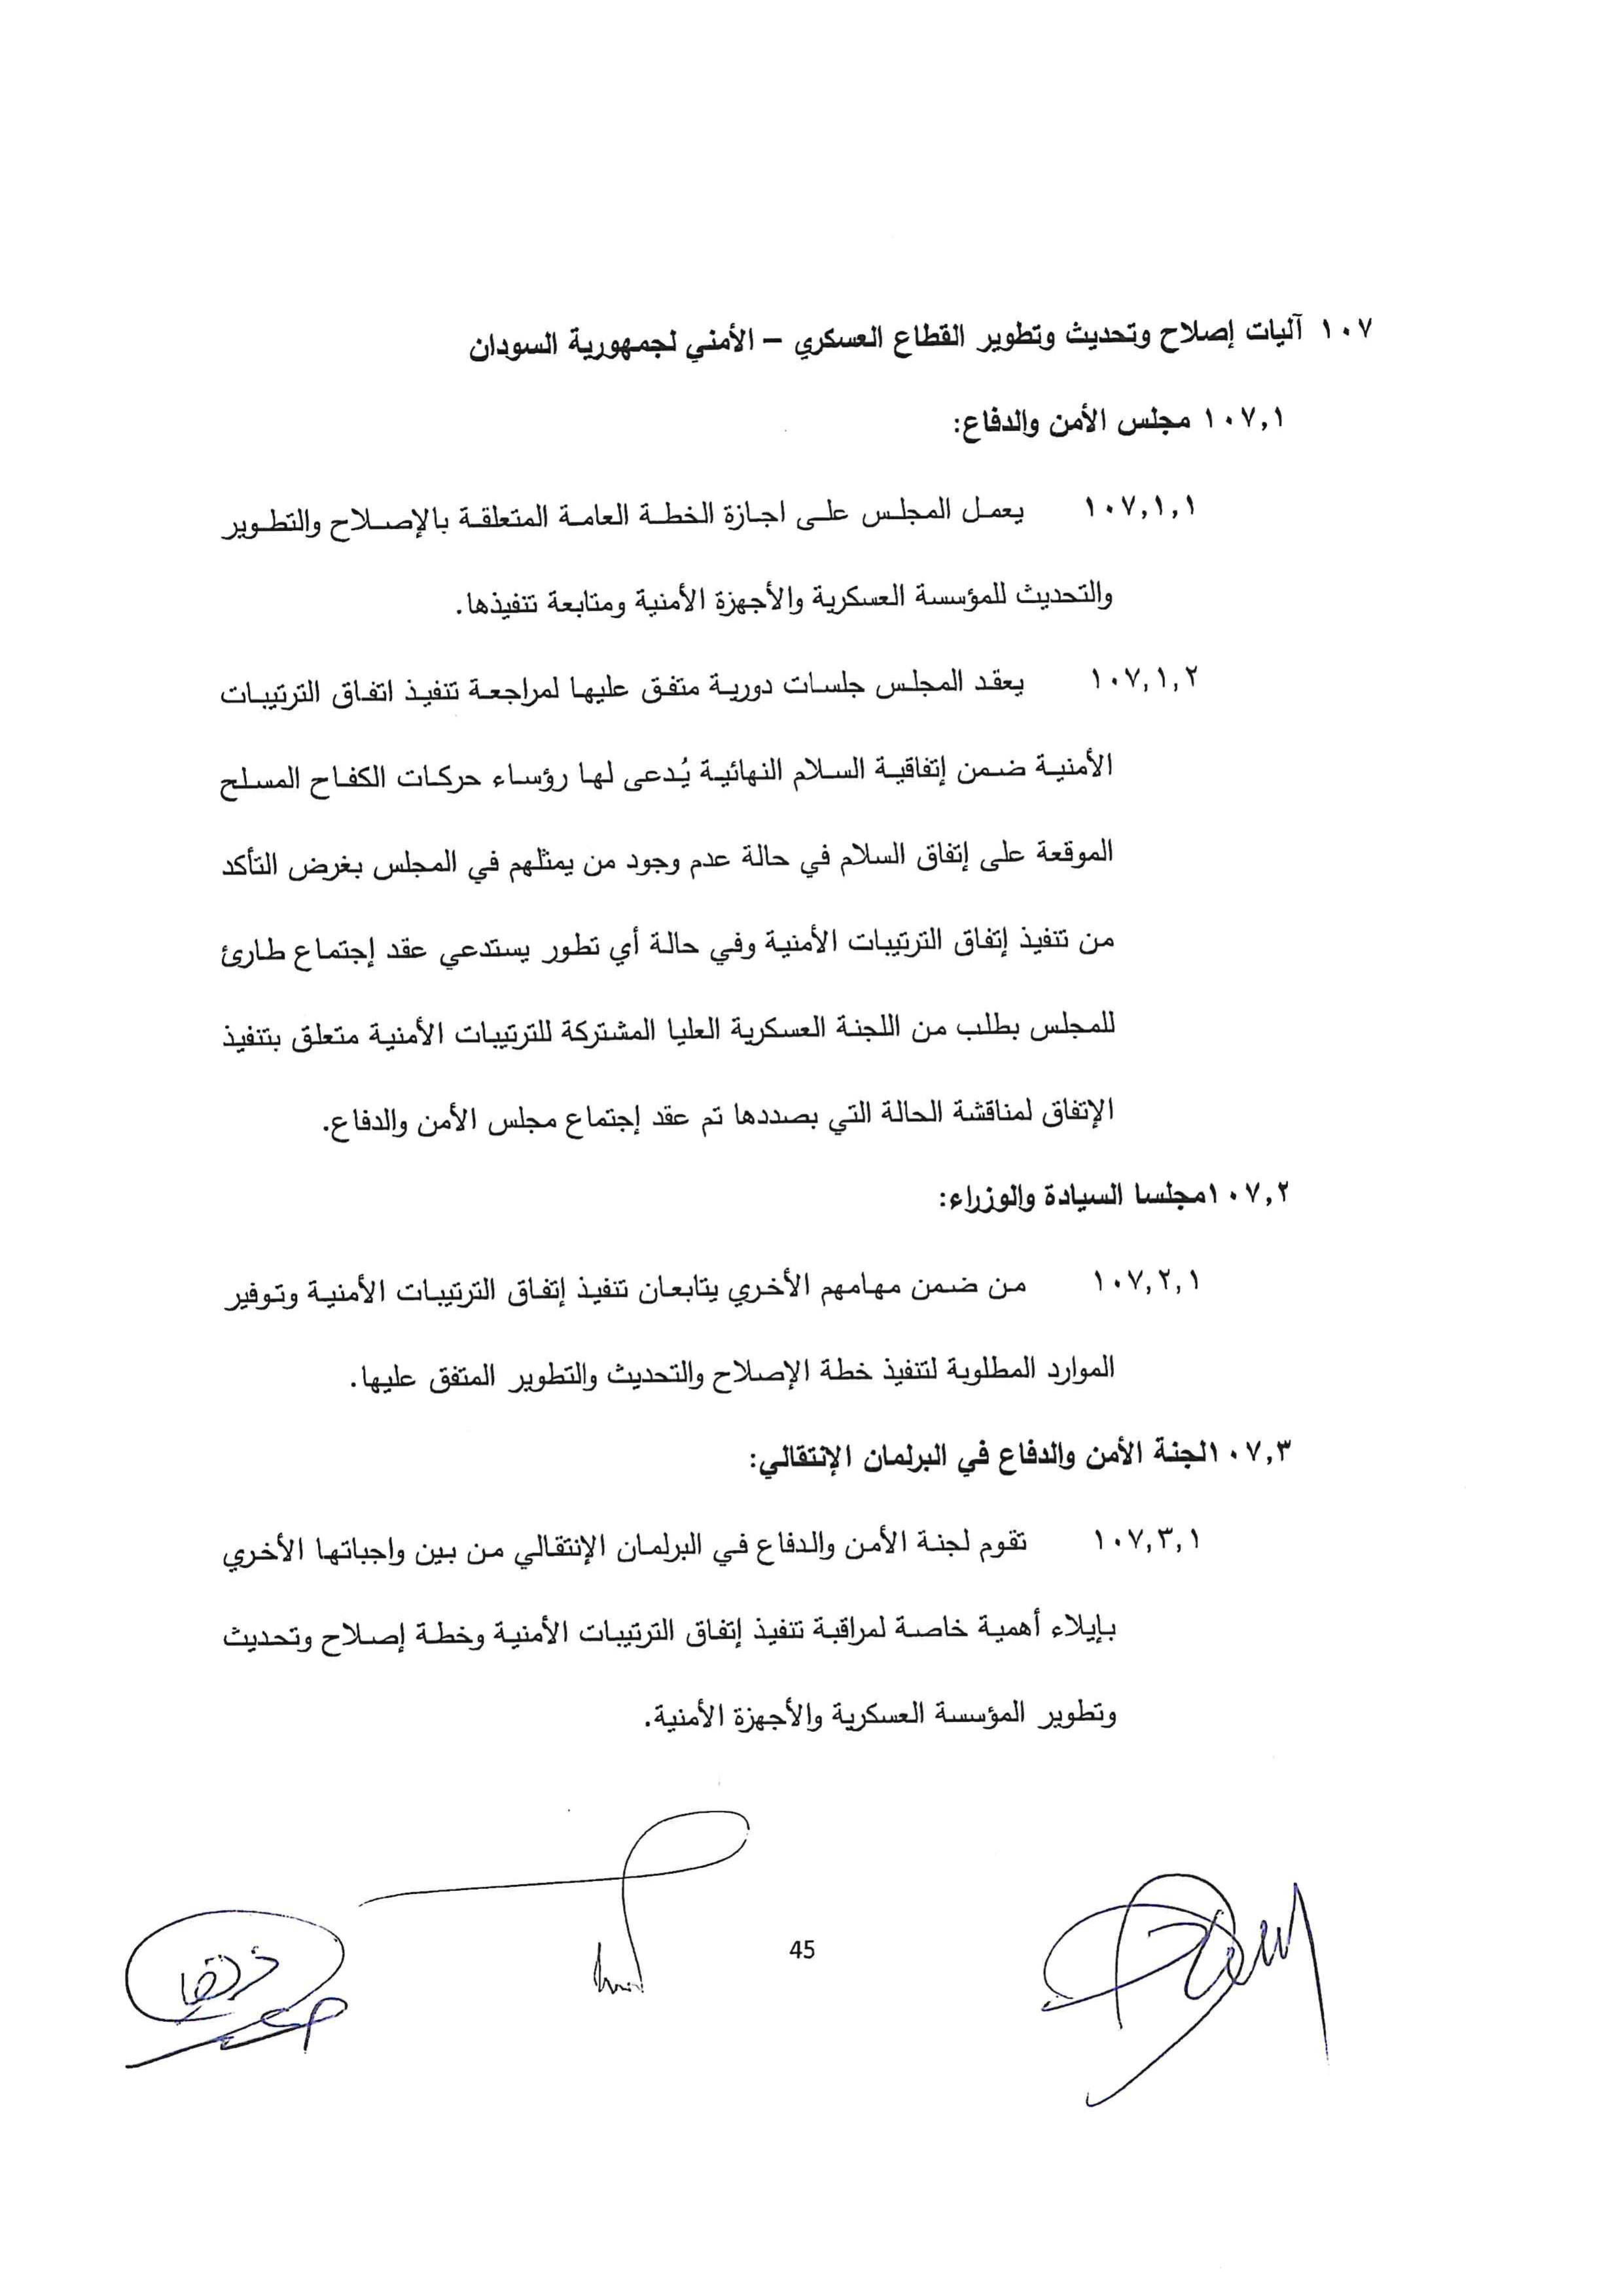 ١٠٧ آليات إصلاح وتحديث وتطوير القطاع العسكري – الأمني لجمهورية السودان
١٠٧,١ مجلس الأمن والدفاع:
١٠٧,١,١ يعمل المجلس على اجازة الخطة العامة المتعلقة بالإصلاح والتطوير
والتحديث للمؤسسة العسكرية والأجهزة الأمنية ومتابعة تنفيذها.
١٠٧,١,٢ يعقد المجلس جلسات دورية متفق عليها لمراجعة تنفيذ اتفاق الترتيبات
الأمنية ضمن إتفاقية السلام النهائية يُدعى لها رؤساء حركات الكفاح المسلح
الموقعة على إتفاق السلام في حالة عدم وجود من يمثلهم في المجلس بغرض التأكد
من تنفيذ إتفاق الترتيبات الأمنية وفي حالة أي تطور يستدعي عقد إجتماع طارئ
للمجلس بطلب من اللجنة العسكرية العليا المشتركة للترتيبات الأمنية متعلق بتنفيذ
الإتفاق لمناقشة الحالة التي بصددها تم عقد إجتماع مجلس الأمن والدفاع.
١٠٧,٢مجلسا السيادة والوزراء:
١٠٧,٢,١ من ضمن مهامهم الأخري يتابعان تنفيذ إتفاق الترتيبات الأمنية وتوفير
الموارد المطلوبة لتنفيذ خطة الإصلاح والتحديث والتطوير المتفق عليها.
١٠٧,٣لجنة الأمن والدفاع في البرلمان الإنتقالي:
١٠٧,٣,١ تقوم لجنة الأمن والدفاع في البرلمان الإنتقالي من بين واجباتها الأخري
بإيلاء أهمية خاصة لمراقبة تنفيذ إتفاق الترتيبات الأمنية وخطة إصلاح وتحديث
وتطوير المؤسسة العسكرية والأجهزة الأمنية.
45